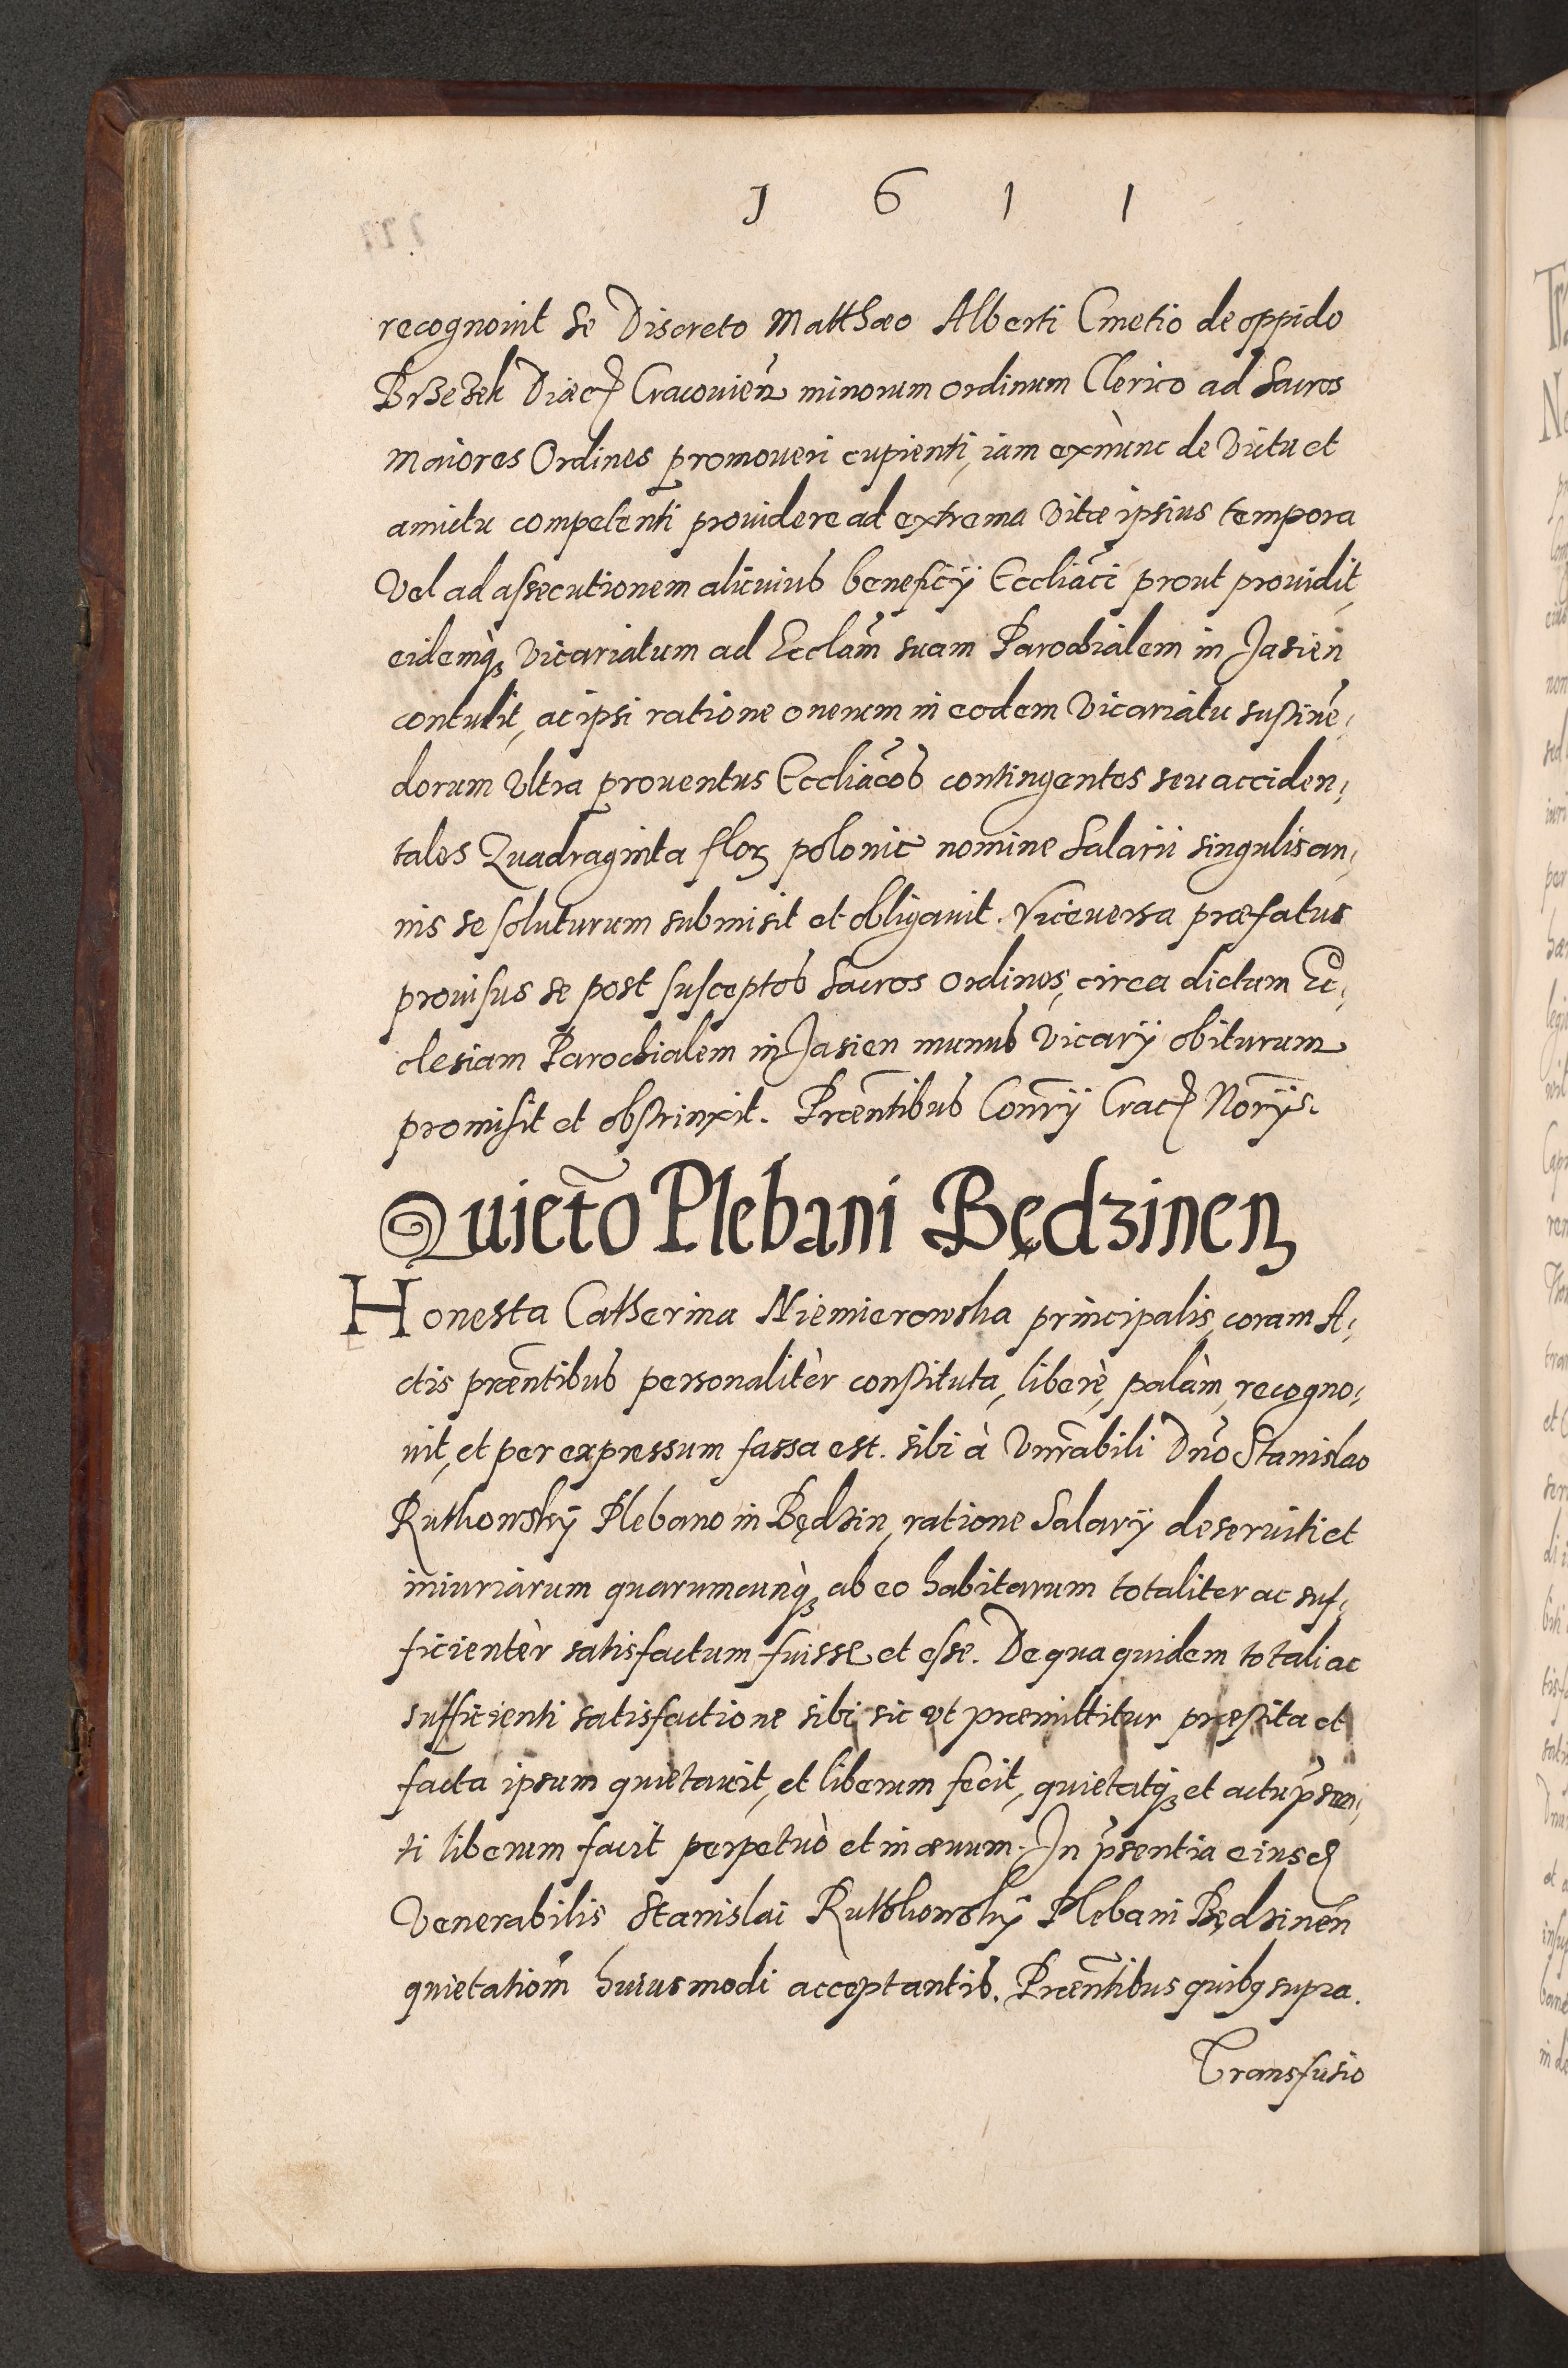 1 6 1 1
recognouit se Discreto Matthæo Alberti Cmetio de oppido
Brzezek Diæc Cracouien minorum ordinum Clerico ad Sacros
Maiores Ordines promoueri cupienti, iam exnùnc de Victu et
amictu competenti prouidere ad extrema Vitæ ipsius tempora
Vel ad assecutionem alicuius beneficÿ Eccliaci prout prouidit,
eidemq̀ꝫ Vicariatum ad Ecclam̃ suam Parochialem in Jasień
contulit, ac ipsi ratione onerum in eodem Vicariatu sustinẽ,
dorum Vltra prouentus Eccliãcos contingentes seu acciden,
tales Quadraginta floꝝ polonic nomine Salarii singulis an,
nis se soluturum submisit et obligauit. Viceuersa præfatus
prouisus se post susceptos Sacros Ordines, circa dictam Ec,
clesiam Parochialem in Jasien munus Vicarÿ obiturum
promisit et obstrinxit. Præñtibus Conrÿ Crac Norÿs.
Quietõ Plebani Będzinen
Honesta Catherina Niemierowska principalis, coram A,
ctis præñtibus personalitèr constituta, liberè, palàm, recogno,
uit, et per expressum fassa est. sibi à Vnrãbili Dnõ Stanislao
Rutkowskÿ Plebano in Będzin, ratione Salarÿ deseruiti et
iniuriarum quarumcunq̀ꝫ ab eo habitarum totaliter ac suf,
ficientèr satisfactum fuisse et esse. De qua quidem totali ac
sufficienti satisfactione sibi sic vt præmittitur præstita et
facta ipsum quietauit, et liberum fecit, quietatqꝫ et actu p̃sen,
ti liberum facit perpetuò et in æuum. In p̃sentia eiusd
Venerabilis Stanislai Ruthkowskÿ Plebani Będzineñ
quietatiom̃ huiusmodi acceptantis. Præñtibus quibꝫ supra.
Transfusio